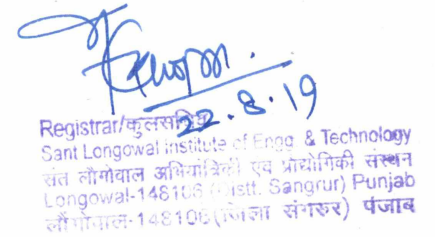 22.8.19
Registrar/कुलसचिव
Sant Longowal Institute of Engg. & Technology
संत लौंगोवाल अभियांत्रिकी एवं प्रौद्योगिकी संस्थान
Longowal-148106 (Distt. Sangrur) Punjab
लौंगोवाल-148106 (जिला संगरूर) पंजाब